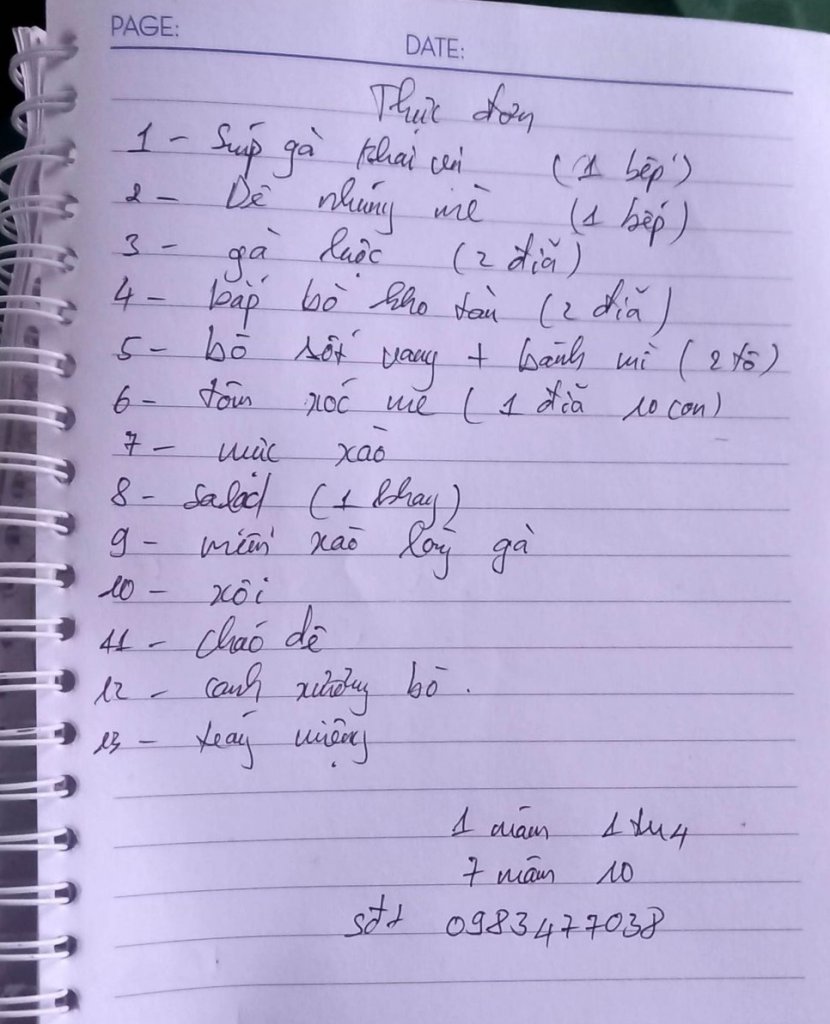 PAGE:
DATE:
Thực đơn
1 - Súp gà khai vị (1 bếp)
2 - Dê nhúng mẻ (1 bếp)
3 - gà luộc (2 đĩa)
4 - bắp bò kho tàu (2 đĩa)
5 - bò sốt vang + bánh mì (2 tô)
6 - tôm xốc me (1 đĩa 10 con)
7 - mực xào
8 - salad (1 khay)
9 - miến xào lòng gà
10 - xôi
11 - cháo dê
12 - canh xương bò.
13 - tráng miệng
1 mâm 1tr4
7 mâm 10
sđt 0983477038